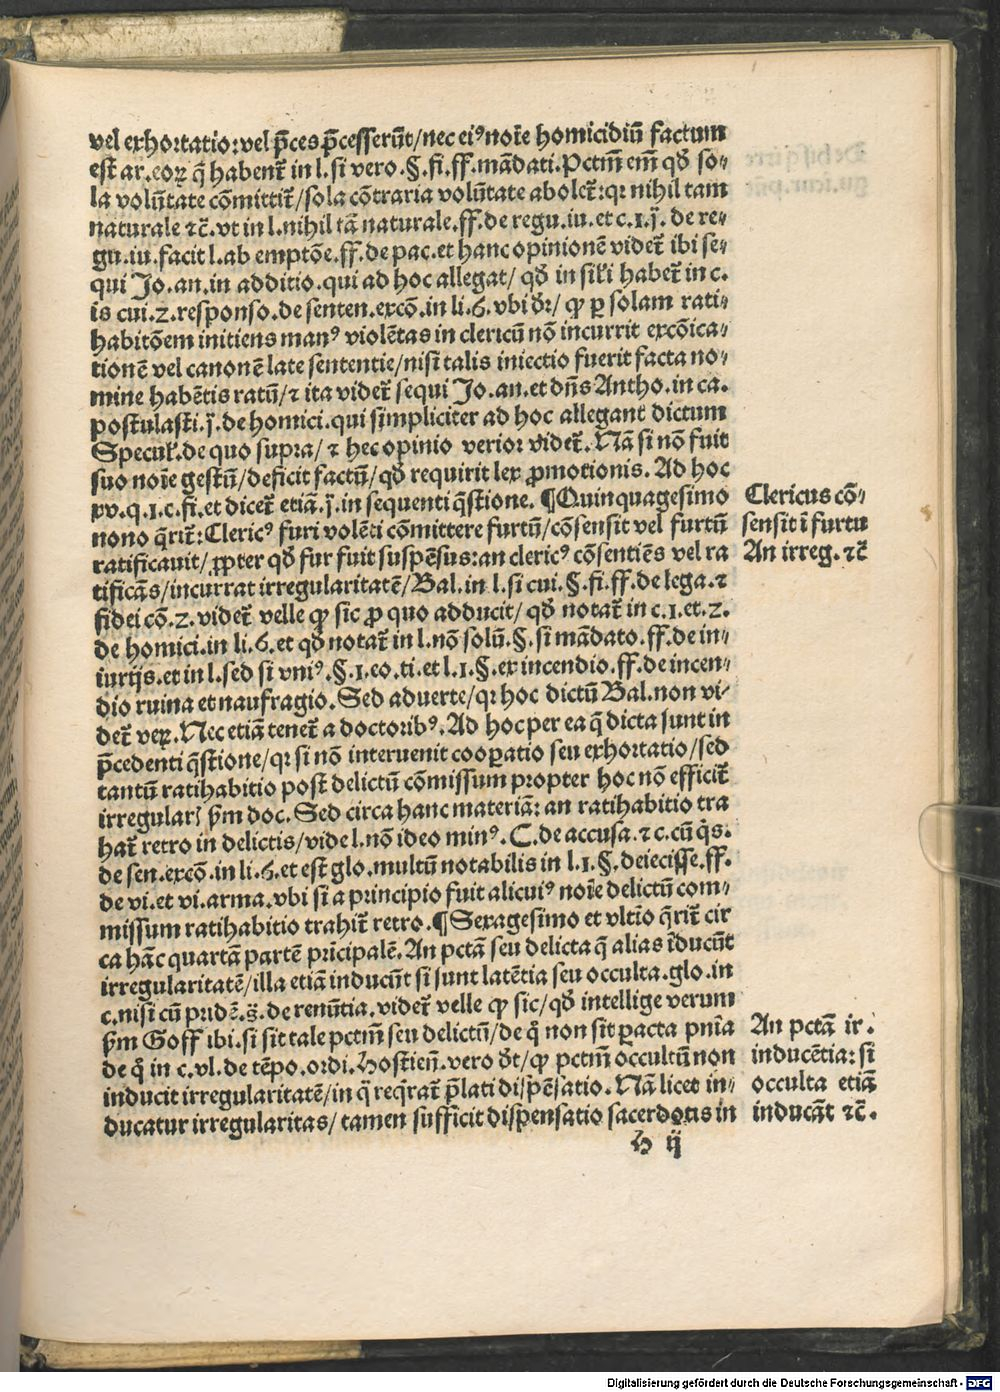 vel exhortatio: vel p̄ces p̄cesserūt/nec ei⁹ noīe homicidiū factum
est ar.eoꝝ q̄ habent̄ in l.si vero.§.fi.ff.mādati.Pctm̄ em̄ qd̄ so⸗
la volūtate cōmittit̄/sola cōtraria volūtate abolet̄: qꝛ nihil tam
naturale ⁊c̄.vt in l.nihil tā naturale.ff.de regu.iu.et c.1.j̄.de re⸗
gu.iu.facit l.ab emptōe.ff.de pac.et hanc opinionē videt̄ ibi se⸗
qui Jo.an.in additio.qui ad hoc allegat/ qd̄ in sil̄i habet̄ in c.
is cui.2.responso.de senten.excō.in li.6.vbi dr̄/ ꝙ ꝑ solam rati⸗
habitōem initiens man⁹ violētas in clericū nō incurrit excōica⸗
tionē vel canonē late sententie/nisi talis iniectio fuerit facta no⸗
mine habētis ratū/⁊ ita videt̄ sequi Jo.an.et dn̄s Antho.in ca.
postulasti.j̄.de homici.qui simpliciter ad hoc allegant dictum
Speculꝭ.de quo supra/ ⁊ hec opinio verior videt̄. Nā si nō fuit
suo noīe gestū/deficit factū/qd̄ requirit lex ꝓmotionis. Ad hoc
xv.q.1.c.fi.et dicet̄ etiā.j̄.in sequenti q̄stione. ¶Quinquagesimo
nono q̄rit̄: Cleric⁹ furi volēti cōmittere furtū/cōsensit vel furtū
ratificauit/ ꝓpter qd̄ fur fuit suspēsus: an cleric⁹ cōsentiēs vel ra
tificās/incurrat irregularitatē/Bal.in l.si cui.§.fi.ff.de lega.⁊
fidei cō.2.videt̄ velle ꝙ sic ꝓ quo adducit/ qd̄ notat̄ in c.1.et.2.
de homici.in li.6.et qd̄ notat̄ in l.nō solū.§.si mādato.ff.de in⸗
iurijs.et in l.sed si vni⁹.§.1.eo.ti.et l.1.§.ex incendio.ff.de incen⸗
dio ruina et naufragio. Sed aduerte/qꝛ hoc dictū Bal.non vi⸗
det̄ veꝝ.Nec etiā tenet̄ a doctorib⁹. Ad hoc per ea q̄ dicta sunt in
p̄cedenti q̄stione/qꝛ si nō interuenit cooꝑatio seu exhortatio/sed
tantū ratihabitio post delictū cōmissum propter hoc nō efficit̄
irregularꝭ ẜm doc. Sed circa hanc materiā: an ratihabitio tra
hat̄ retro in delictis/vide l.nō ideo min⁹. C.de accusa.⁊ c.cū q̇s.
de sen.excō.in li.6.et est glo.multū notabilis in l.1.§.deiecisse.ff.
de vi.et vi.arma.vbi si a principio fuit alicui⁹ noīe delictū com⸗
missum ratihabitio trahit̄ retro. ¶Sexagesimo et vltīo q̄rit̄ cir
ca hāc quartā partē prīcipalē. An pctā seu delicta q̄ alias īducūt
irregularitatē/illa etiā inducūt si sunt latētia seu occulta.glo.in
c.nisi cū pridē.s̄.de renūtia.videt̄ velle ꝙ sic/qd̄ intellige verum
ẜm Goff ibi.si sit tale pctm̄ seu delictū/de q̊ non sit ꝑacta pn̄ia
de q̊ in c.vl.de tēpo.ordi.Hostien̄.vero dt̄/ꝙ pctm̄ occultū non
inducit irregularitatē/in q̄ reqrat̄ p̄lati dispēsatio. Nā licet in⸗
ducatur irregularitas/ tamen sufficit dispensatio sacerdotis in
h ij
Clericus cō⸗
sensit ī furtu
An irreg.⁊c̄
An pctā ir.
inducētia: si
occulta etiā
inducāt ⁊c̄.
Digitalisierung gefördert durch die Deutsche Forschungsgemeinschaft - DFG